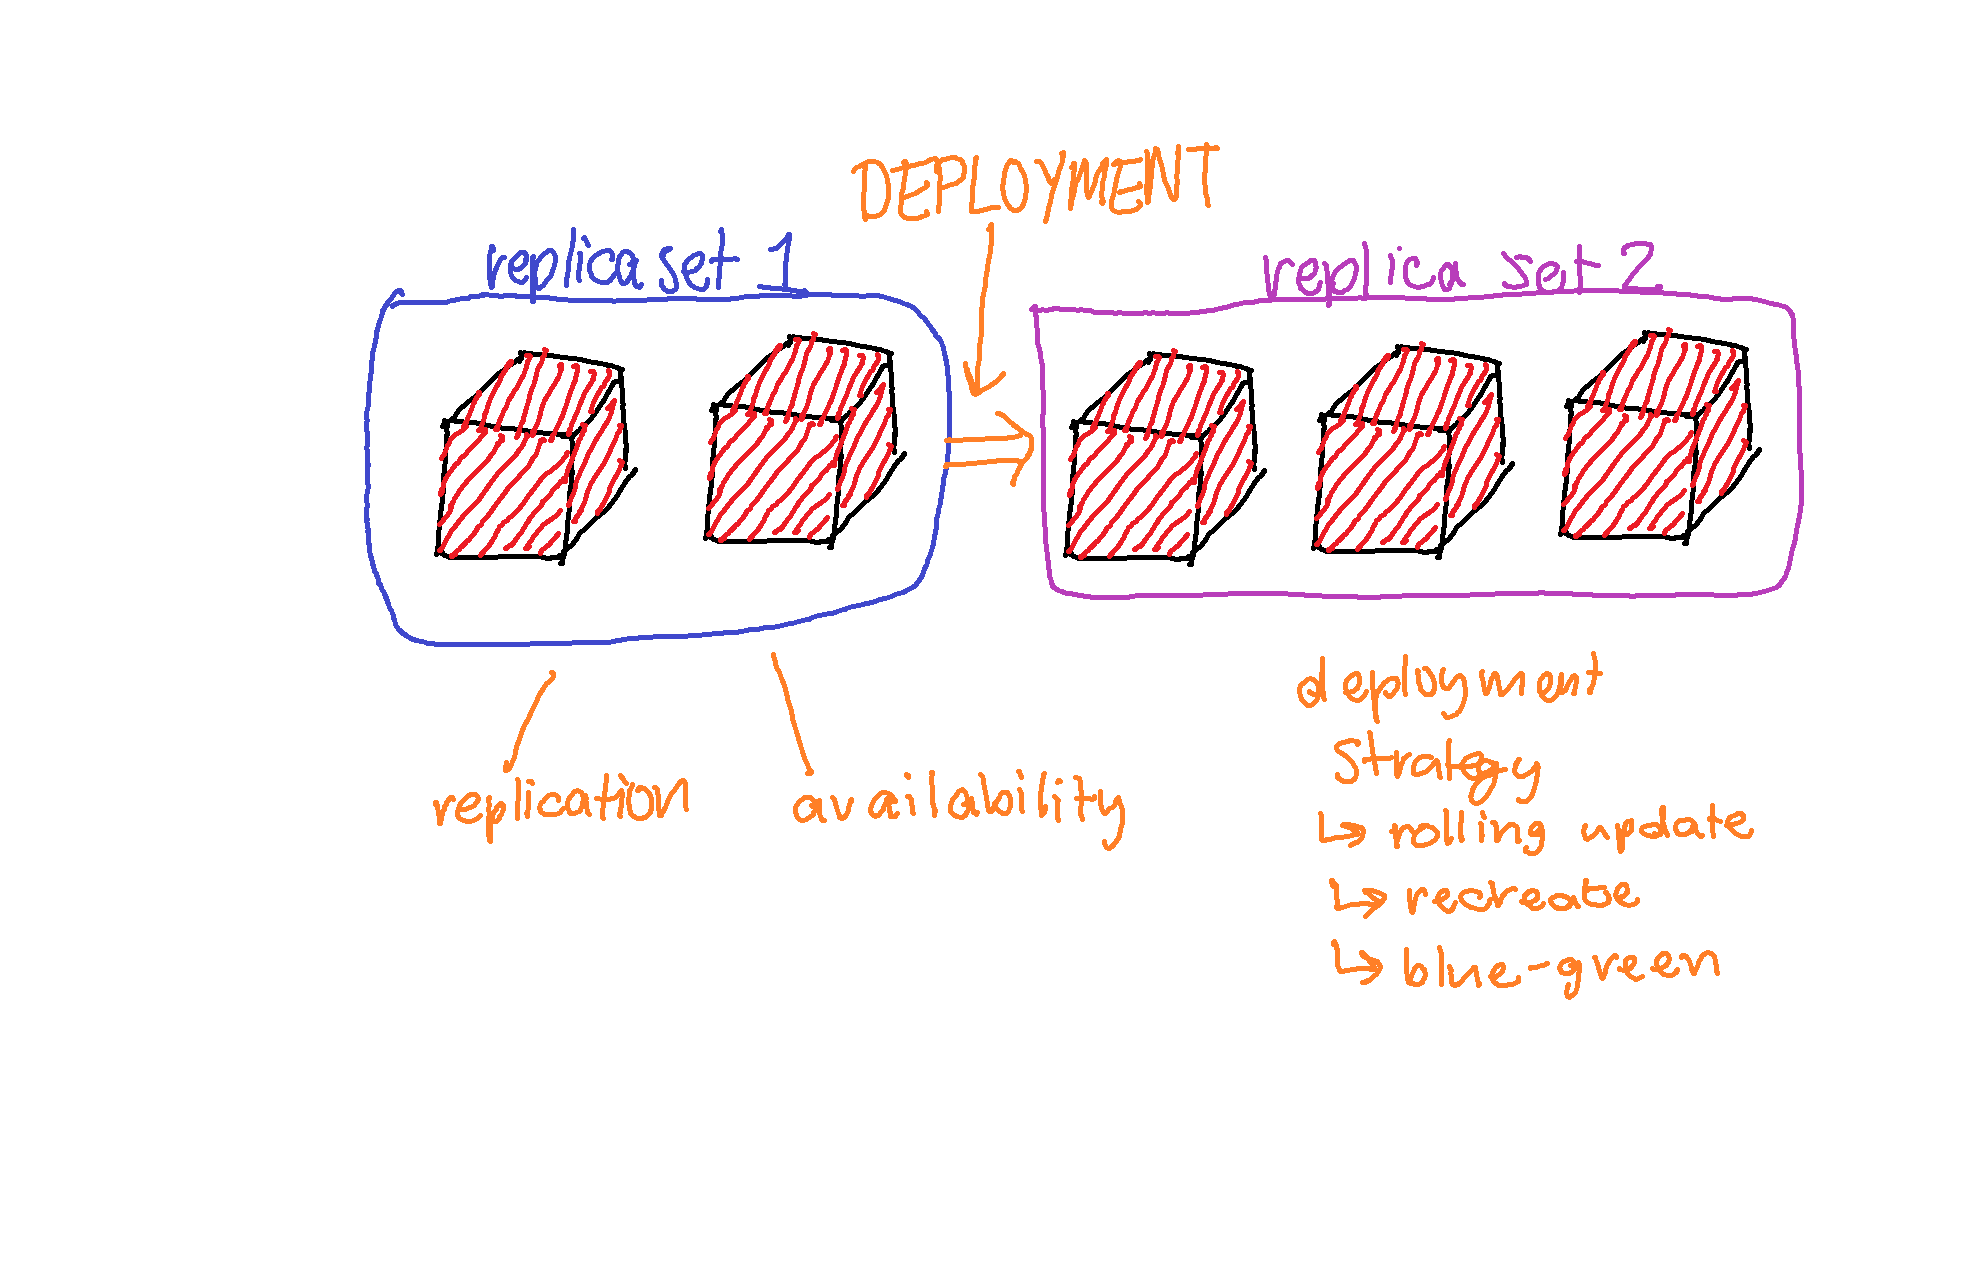 DEPLOYMENT
replica set 1
replica set 2
replication
availability
deployment
Strategy
↳ rolling update
↳ recreate
↳ blue-green